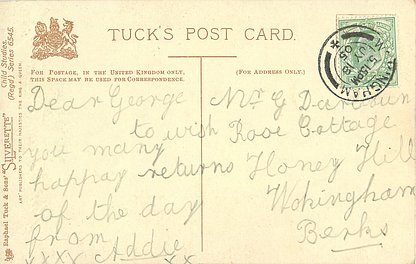 TUCK'S POST CARD.
FOR POSTAGE, IN THE UNITED KINGDOM ONLY,
THIS SPACE MAY BE USED FOR CORRESPONDENCE.
(FOR ADDRESS ONLY.)
Dear George
to wish
you many
happay returns
of the day
from
Addie
xxxx xx
Mr G
Rose Cottage
Honey Hill
Wokingham
Berks
Raphael Tuck & Sons' "SILVERETTE"
ART PUBLISHERS TO THEIR MAJESTIES THE KING & QUEEN.
Child Studies
(Regd) Series 6545.
INGHAM
JY 18
05